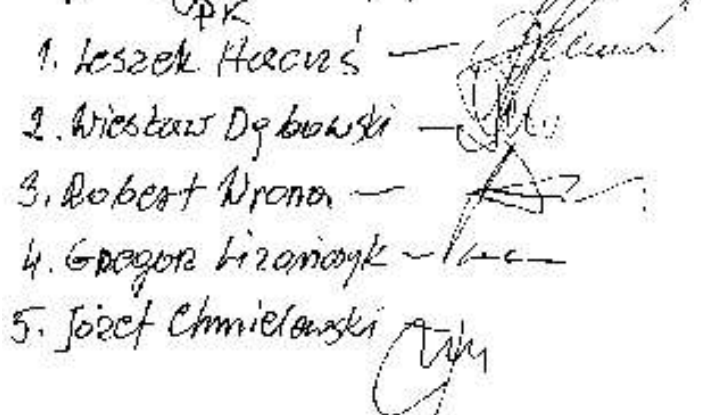 PK
1. Leszek Hacuś -
2. Wiesław Dąbowski -
3. Robert Wrona -
4. Grzegorz Lizończyk -
5. Józef Chmielowski